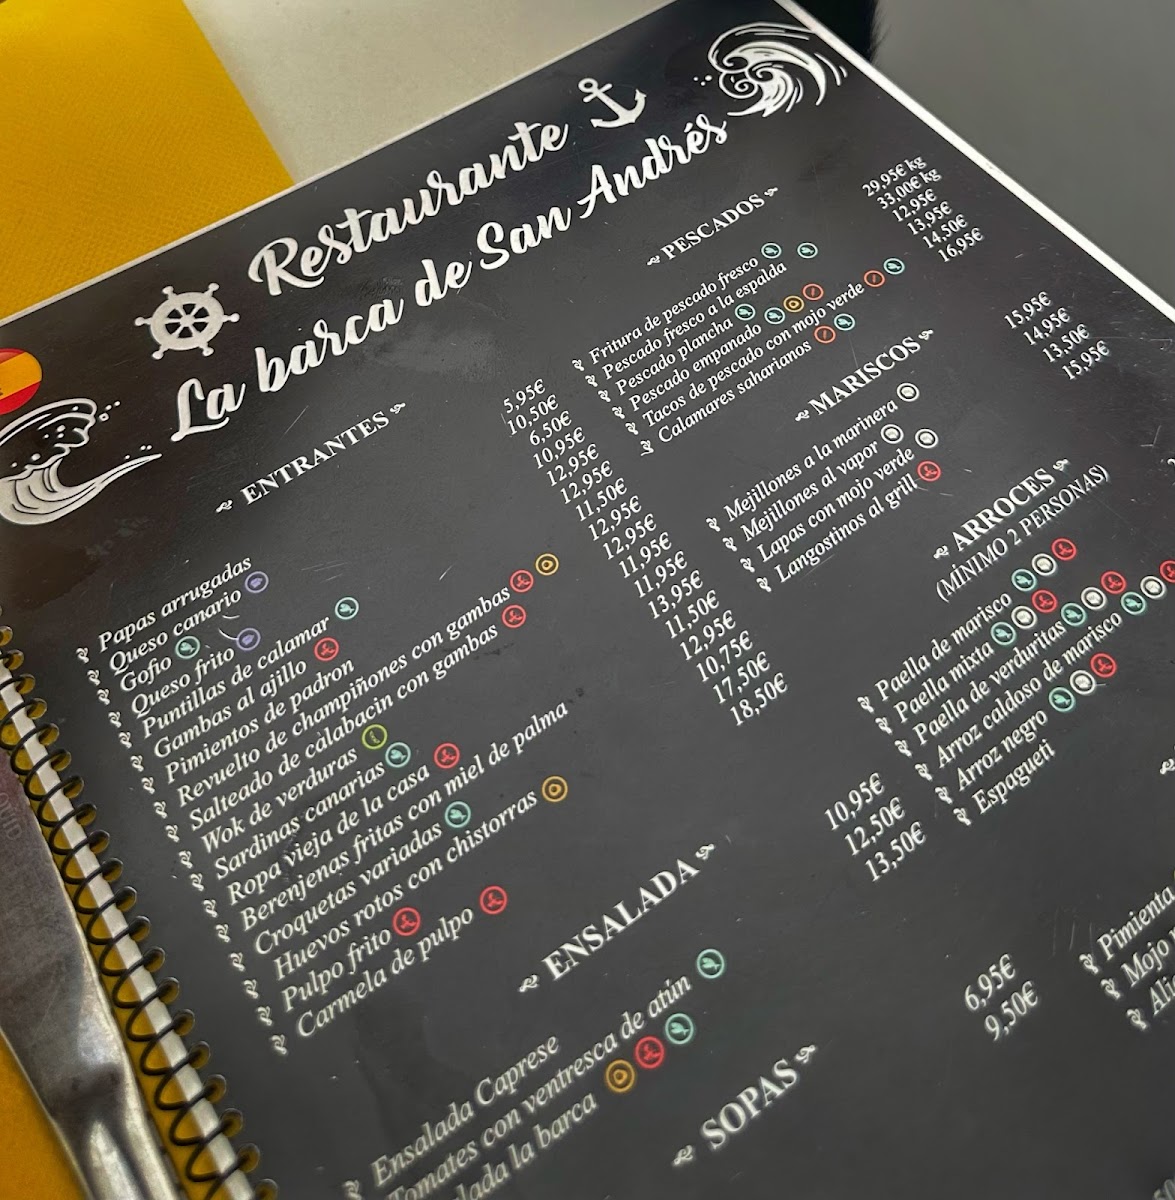 Restaurante
La barca de San Andrés
ENTRANTES
Papas arrugadas 5,95€
Queso canario 10,50€
Gofio 6,50€
Queso frito 10,95€
Puntillas de calamar 12,95€
Gambas al ajillo 12,95€
Pimientos de padron 11,50€
Revuelto de champiñones con gambas 12,95€
Salteado de calabacin con gambas 12,95€
Wok de verduras 11,95€
Sardinas canarias 11,95€
Ropa vieja de la casa 13,95€
Berenjenas fritas con miel de palma 11,50€
Croquetas variadas 12,95€
Huevos rotos con chistorras 10,75€
Pulpo frito 17,50€
Carmela de pulpo 18,50€
ENSALADA
Ensalada Caprese 10,95€
Tomates con ventresca de atún 12,50€
la barca 13,50€
SOPAS
6,95€
9,50€
PESCADOS
Fritura de pescado fresco 29,95€ kg
Pescado fresco a la espalda 33,00€ kg
Pescado plancha 12,95€
Pescado empanado 13,95€
Tacos de pescado con mojo verde 14,50€
Calamares saharianos 16,95€
MARISCOS
Mejillones a la marinera 15,95€
Mejillones al vapor 14,95€
Lapas con mojo verde 13,50€
Langostinos al grill 15,95€
ARROCES
(MÍNIMO 2 PERSONAS)
Paella de marisco
Paella mixta
Paella de verduritas
Arroz caldoso de marisco
Arroz negro
Espagueti
Pimienta
Mojo